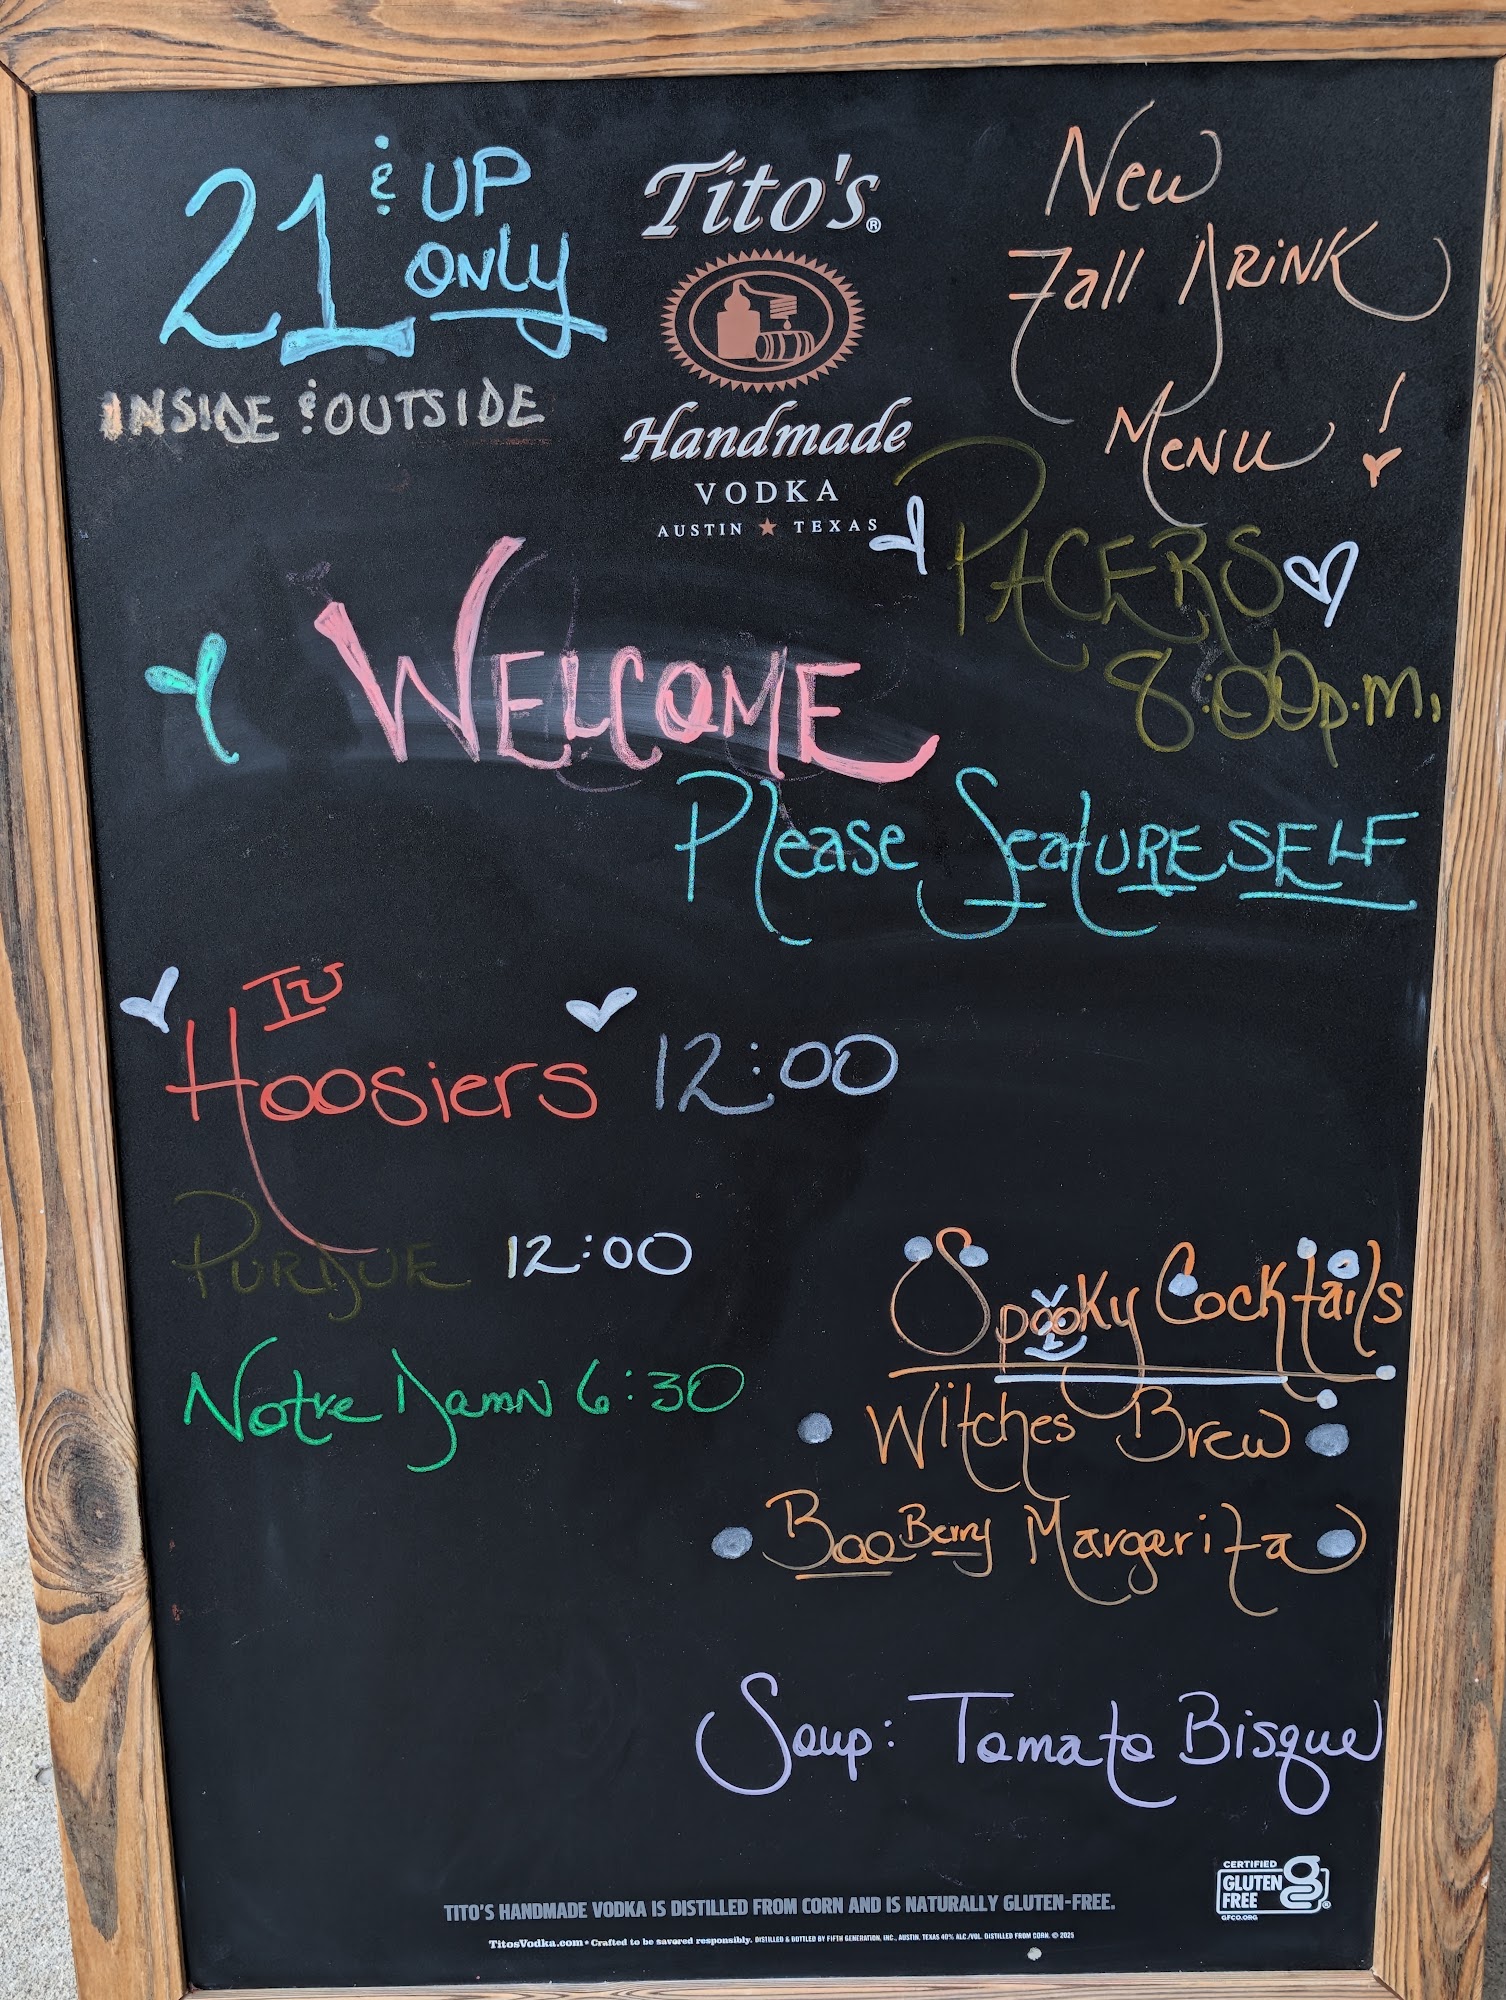 21 & UP
ONLY
INSIDE & OUTSIDE
Tito's®
Handmade
VODKA
AUSTIN ★ TEXAS
New
Fall DRINK
MENU!
PACERS
8:00p.m.
WELCOME
Please SeatURESELF
IU
Hoosiers 12:00
PURDUE 12:00
Notre Damn 6:30
Spooky Cocktails
Witches Brew
BooBerry Margarita
Soup: Tomato Bisque
CERTIFIED
GLUTEN
FREE
GFCO.ORG
TITO'S HANDMADE VODKA IS DISTILLED FROM CORN AND IS NATURALLY GLUTEN-FREE.
TitosVodka.com • Crafted to be savored responsibly. DISTILLED & BOTTLED BY FIFTH GENERATION, INC., AUSTIN, TEXAS 40% ALC./VOL. DISTILLED FROM CORN. © 2025